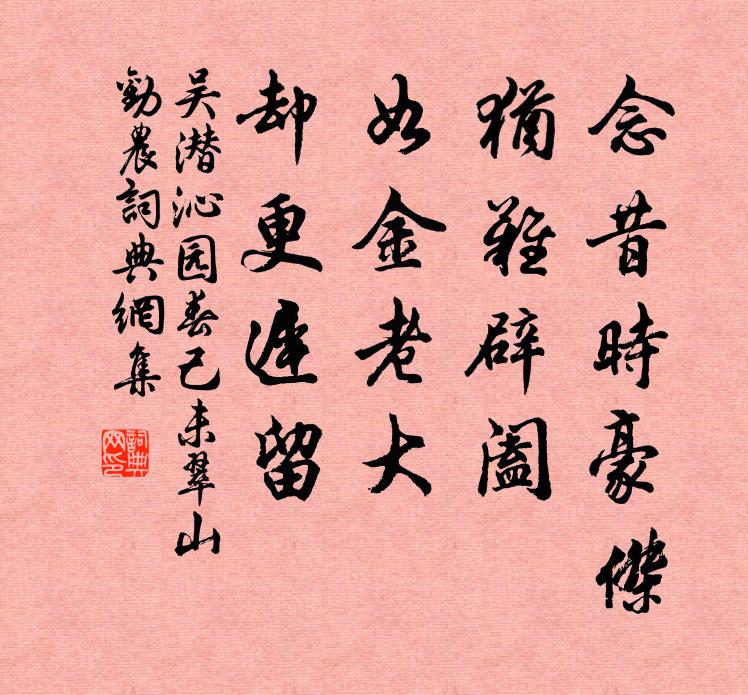 念昔時豪傑
猶難辟闔
如金老大
却更遲留
吴潜沁园春己未翠山
勸農詞典網集
詞典網印